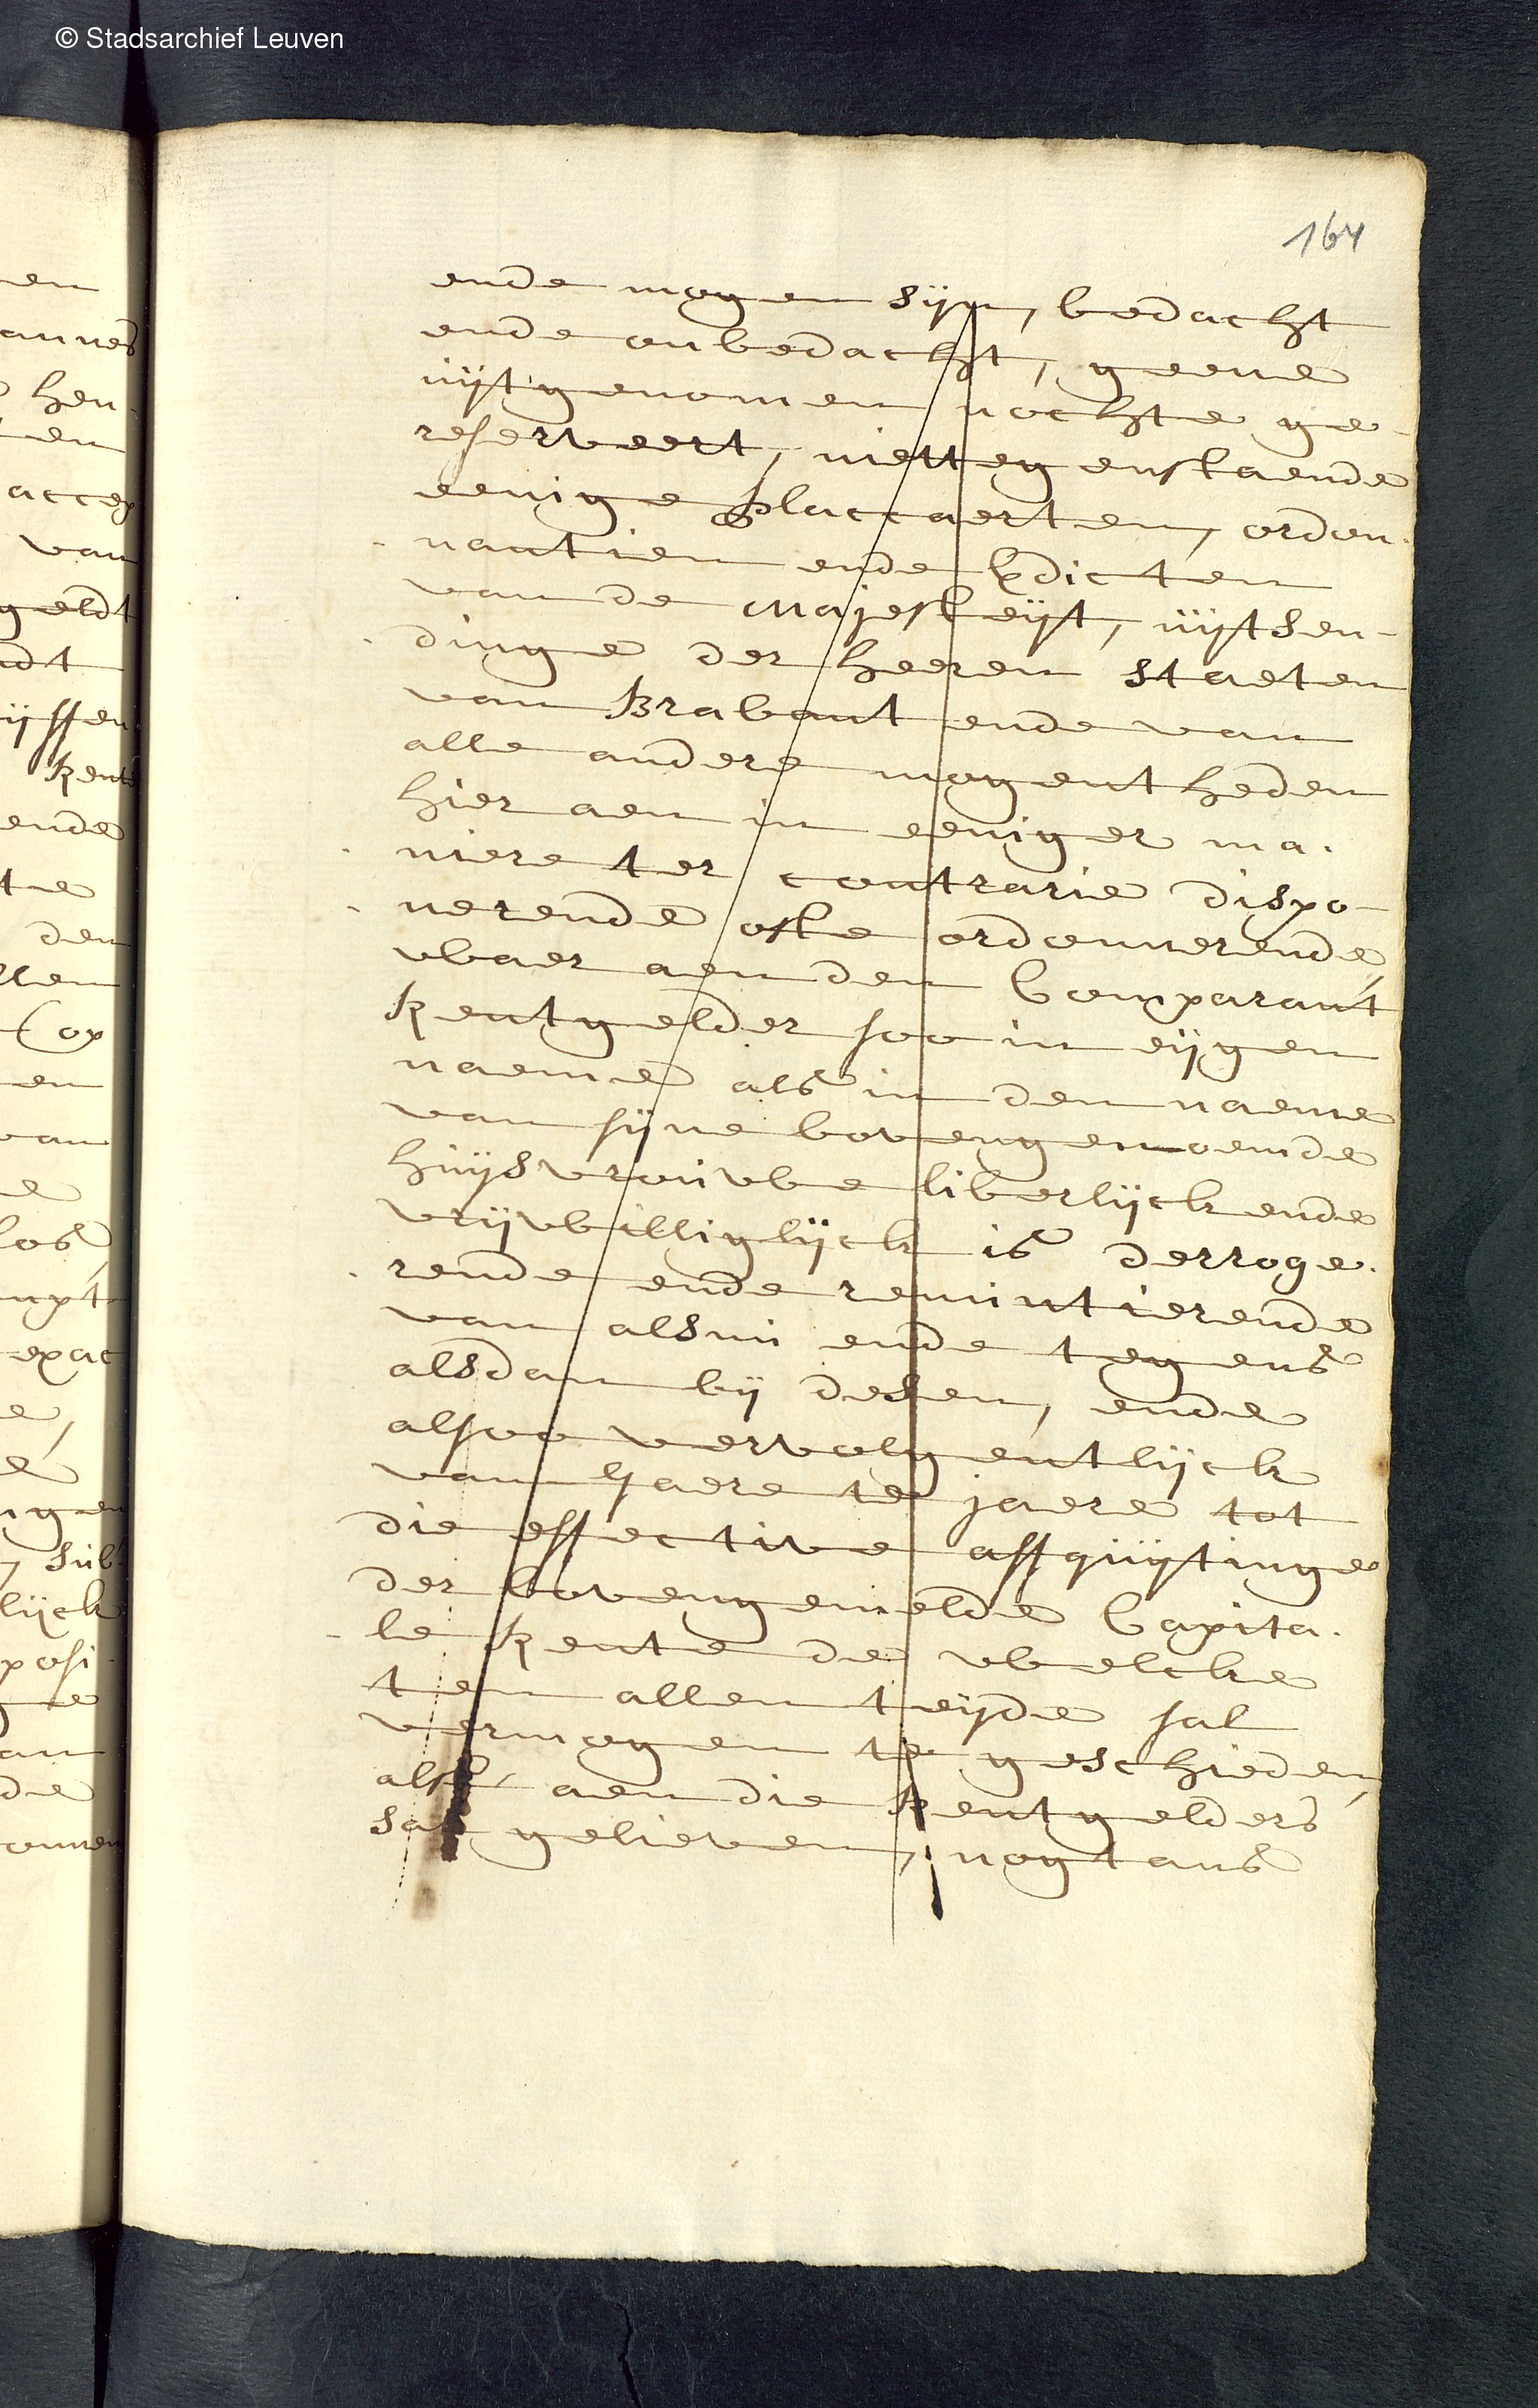 © Stadsarchief Leuven
164
ende mogen sijn, bedacht
ende onbedacht, geene
uijtgenomen nochte ge-
reserveert, niettegenstaende
eenige placcaerten, ordon-
nantien ende Edicten
van de Majesteijt, uijtsen-
dinge der heeren staeten
van Brabant ende van
alle andere mogentheden
hier aen in eeniger ma-
niere ter contrarie dispo-
nerende ofte ordonnerende,
waer aen den Comparant
Rentgelder soo in eijgen
naeme als in den naeme
van sijne bovengenoemde
huijsvrouwe liberlijck ende
vrijwilliglijck is derroge-
rende ende renuntierende
van alsnu ende tegens
alsdan bij desen, ende
alsoo vervolgentlijck
van Jaere te jaere tot
die effective affquijtinge
der bovengemelde Capita-
le Rente de welcke
ten allen teijde sal
vermogen te geschieden,
als aen die Rentgelders
sal gelieven, nogtans
en
annes
hen-
en
accep
van
geldt
ndt
ijssen
Rente
ende
te
den
llen
op
en
van
e
los
mpt
exac
e,
e
igen
, sub-
lijck
posi-
e
an
de
onnen